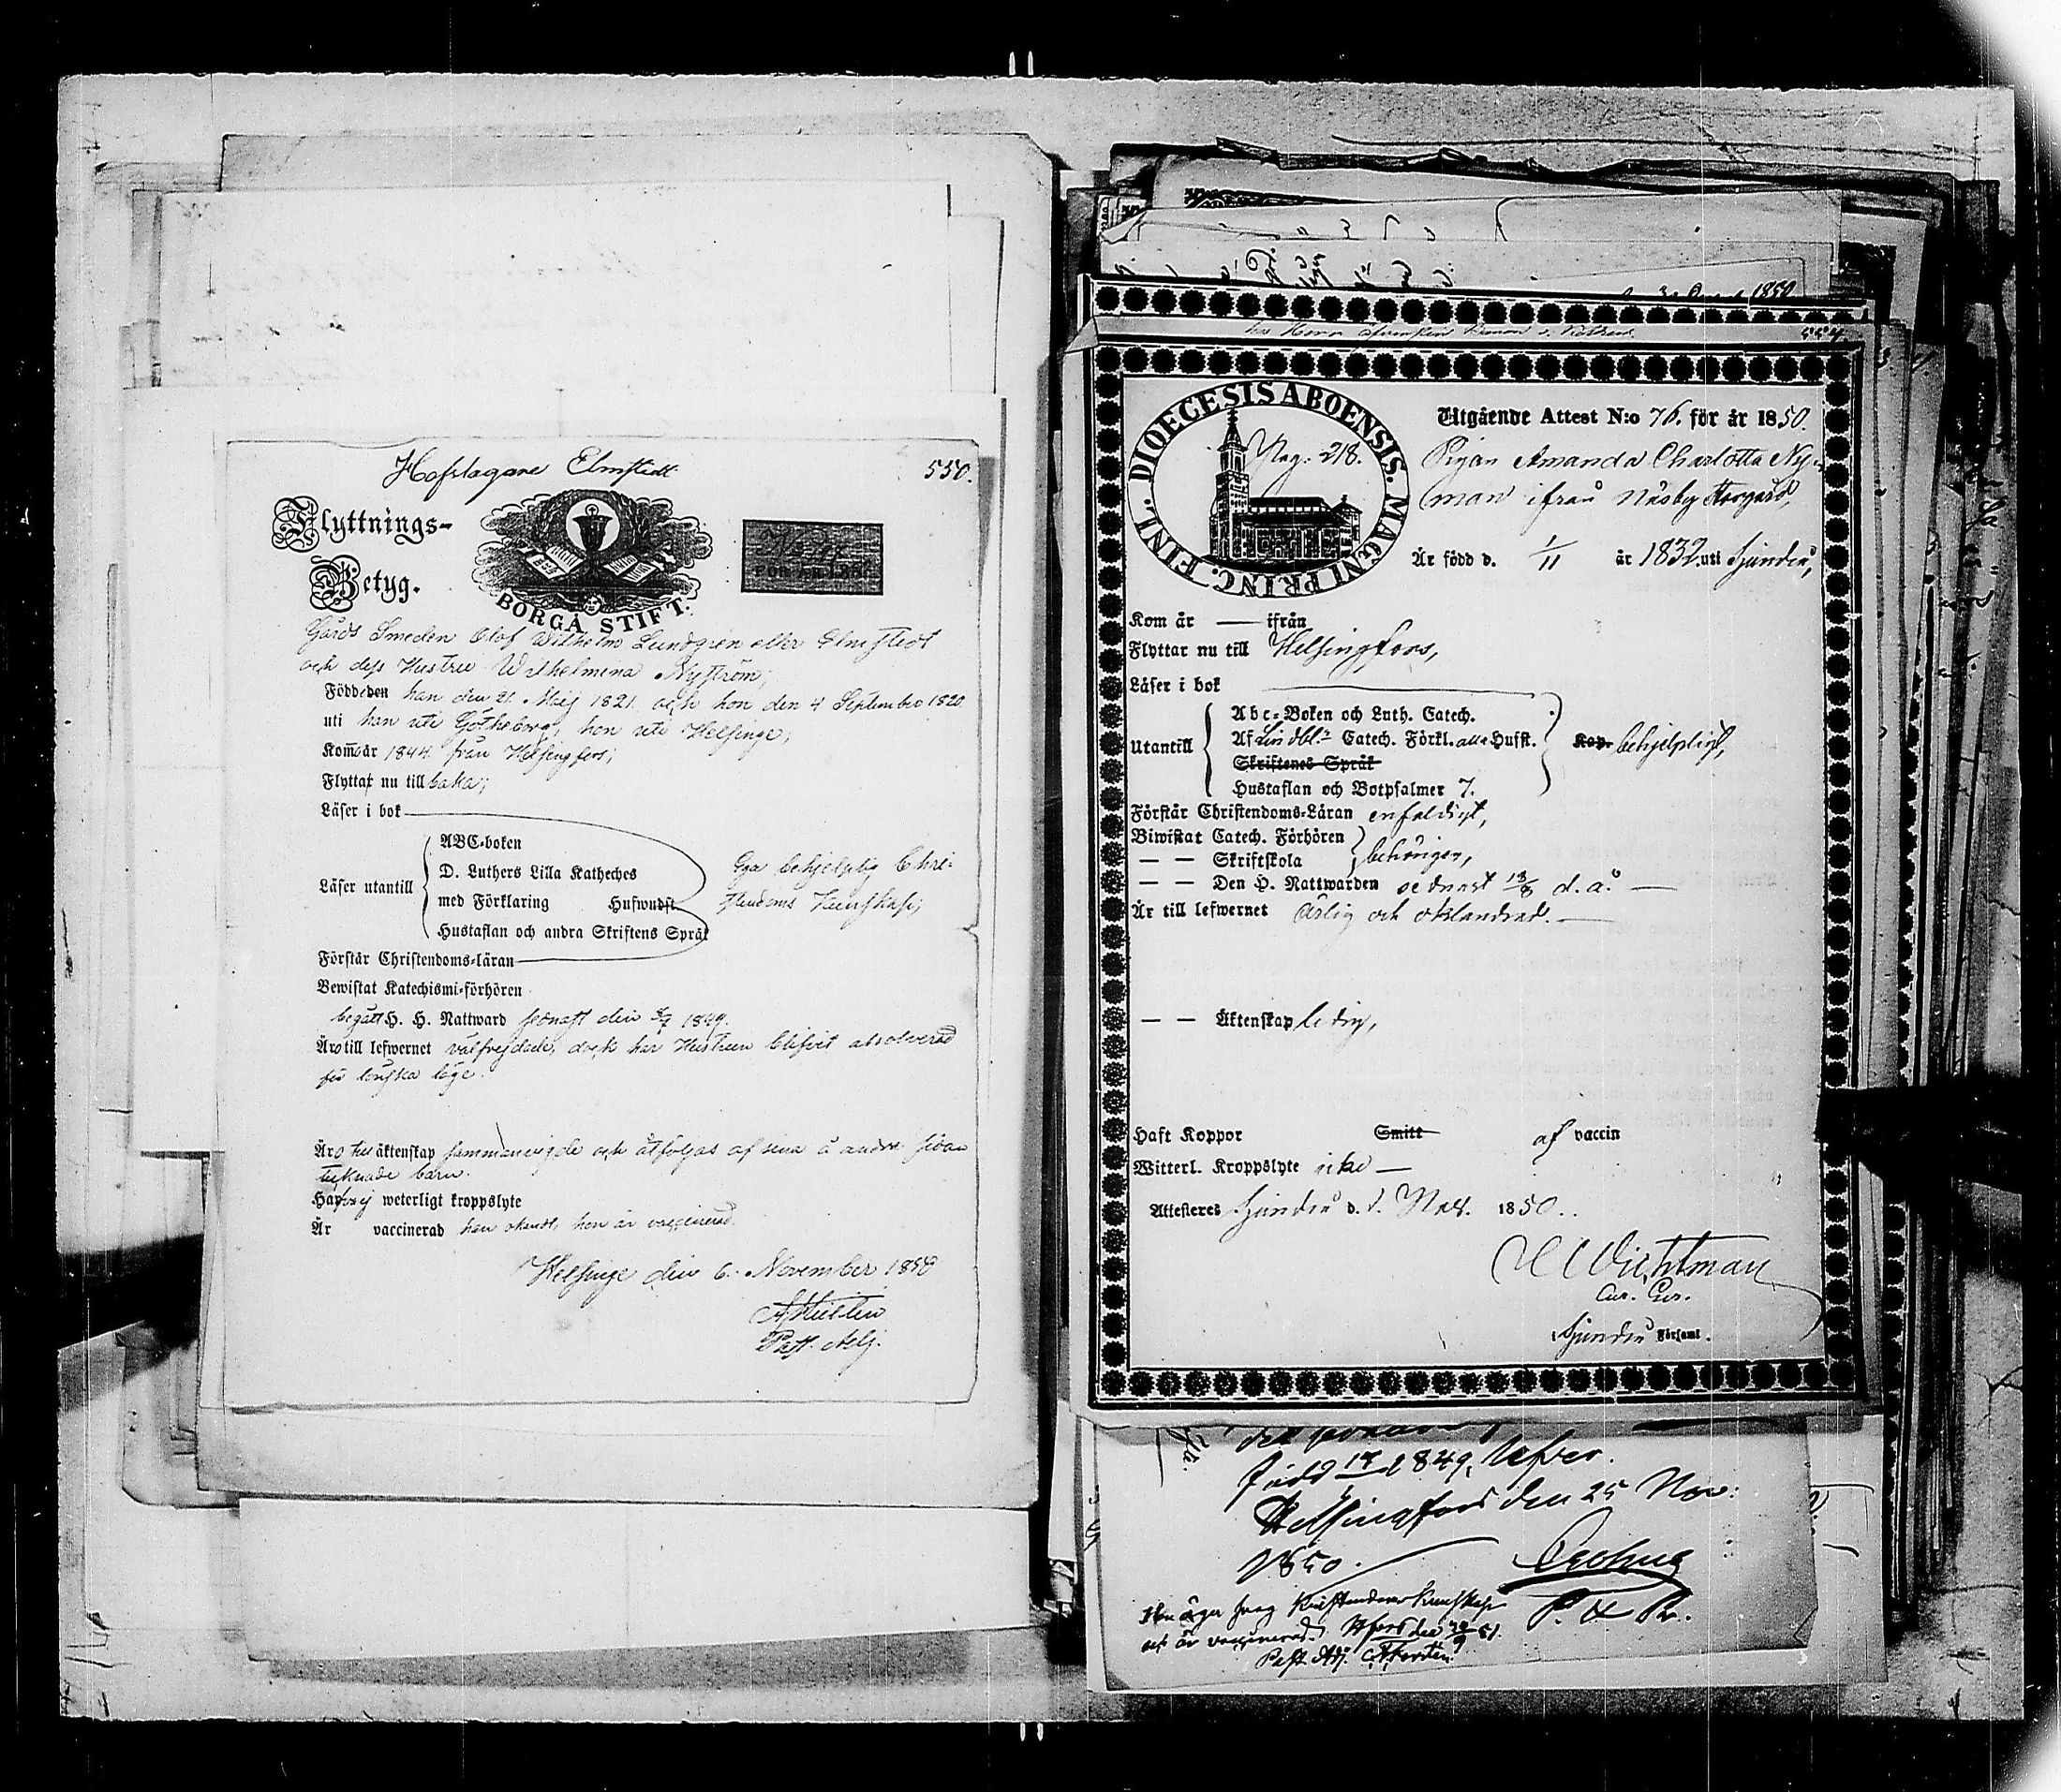 Hofslagare Elmstedt
550.
Flyttnings-
Betyg.
BORGÅ STIFT.
Gårds Smeden Olof Wilhelm Lundgrén eller Elmstedt
och dess Hustru Wilhelmina Nyström,
Född den han den 21. Maij 1821. och hon den 4 September 1820
uti han uti Götheborg, hon uti Helsinge,
Kom år 1844 från Helsingfors;
Flyttar nu till baka;
Läser i bok
ABC-boken
D. Luthers Lilla Katheches
Läser utantill
med Förklaring Hufwudst.
Hustaflan och andra Skriftens Språk
Ega behjelplig Chri-
stendoms Kunskap;
Förstår Christendoms-läran
Bewistat Katechismi-förhören
begått H. H. Nattward senast den 8/7 1849.
Äro till lefwernet välfrejdade, dock har Hustrun blifvit absolverad
för lönska läge.
Äro till äktenskap sammanvigde och åtföljas af sina å andra sidan
tecknade barn.
Hafva ej weterligt kroppslyte
Är vaccinerad han okändt, hon är vaccinerad.
Helsinge den 6. November 1850
Past. Adj.
554
DIOECESIS ABOENSIS. MAGNI PRINC. FINL.
Pag: 218.
Utgående Attest N:o 76. för år 1850.
Pigan Amanda Charlotta Ny-
man ifrån Näsby Storgård,
Är född d. 1/11 år 1832. uti Sjundeå,
Kom år — ifrån
Flyttar nu till Helsingfors,
Läser i bok
Abc-Boken och Luth. Catech.
Utantill
Af Lindbl:s Catech. Förkl. alla Hufst.
Skriftenes Språk
Hustaflan och Botpsalmer 7.
Kap. behjelpligt,
Förstår Christendoms-Läran enfaldigt,
Biwistat Catech. Förhören
— — Skriftskola
behörigen,
— — Den H. Nattwarden sednast 18/8 d. å. —
Är till lefwernet ärlig och oklandrad. —
— — Äktenskap ledig,
Haft Koppor Smitt af vaccin
Witterl. Kroppslyte icke —
Attesteres Sjundeå d. 1. Nov. 1850.
Wichtman
Cur. Gör.
Sjundeå Församl.
född 1849.
Helsingfors den 25 Nov:
1850.
Hon äger svag Kristendoms Kunskap
och är vaccinerad. Hfors den 51.
Past. Adj.